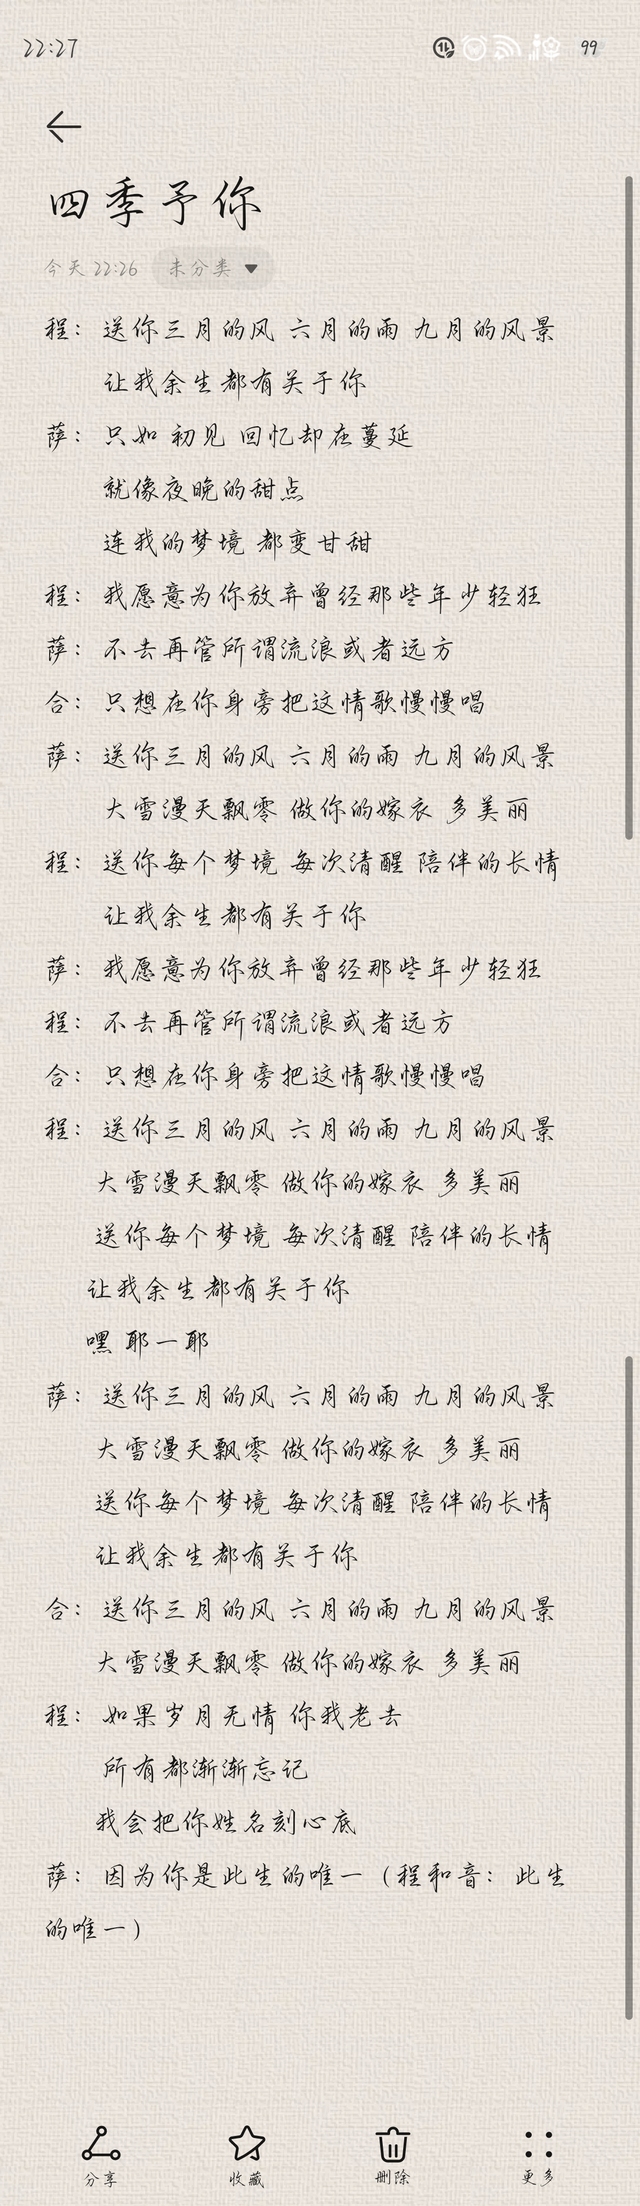 22:27 99
四季予你
今天 22:26 未分类
程：送你三月的风 六月的雨 九月的风景
让我余生都有关于你
萨：只如 初见 回忆却在蔓延
就像夜晚的甜点
连我的梦境 都变甘甜
程：我愿意为你放弃曾经那些年少轻狂
萨：不去再管所谓流浪或者远方
合：只想在你身旁把这情歌慢慢唱
萨：送你三月的风 六月的雨 九月的风景
大雪漫天飘零 做你的嫁衣 多美丽
程：送你每个梦境 每次清醒 陪伴的长情
让我余生都有关于你
萨：我愿意为你放弃曾经那些年少轻狂
程：不去再管所谓流浪或者远方
合：只想在你身旁把这情歌慢慢唱
程：送你三月的风 六月的雨 九月的风景
大雪漫天飘零 做你的嫁衣 多美丽
送你每个梦境 每次清醒 陪伴的长情
让我余生都有关于你
嘿 耶一耶
萨：送你三月的风 六月的雨 九月的风景
大雪漫天飘零 做你的嫁衣 多美丽
送你每个梦境 每次清醒 陪伴的长情
让我余生都有关于你
合：送你三月的风 六月的雨 九月的风景
大雪漫天飘零 做你的嫁衣 多美丽
程：如果岁月无情 你我老去
所有都渐渐忘记
我会把你姓名刻心底
萨：因为你是此生的唯一（程和音：此生
的唯一）
分享 收藏 删除 更多